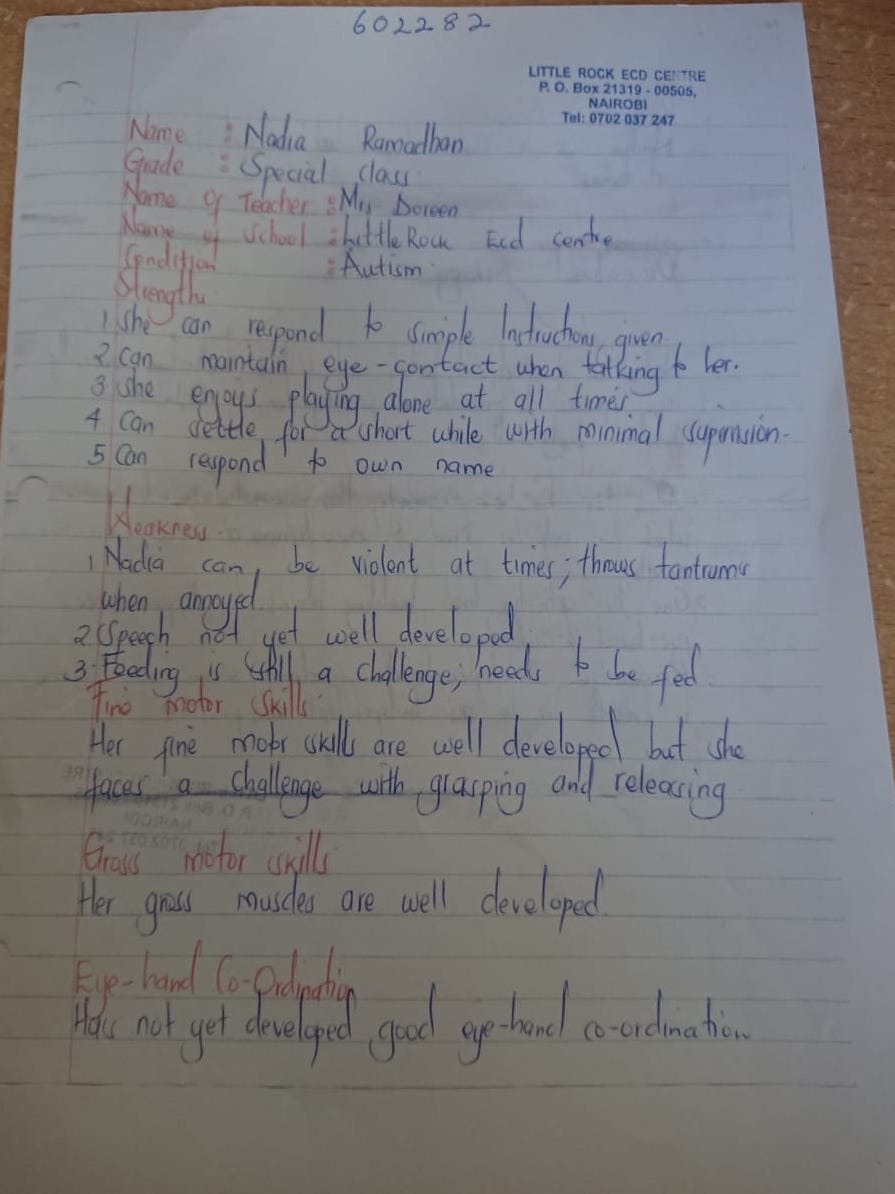 602282
LITTLE ROCK ECD CENTRE
P. O. Box 21319 - 00505,
NAIROBI
Tel: 0702 037 247
Name : Nadia Ramadhan
Grade : Special class
Name of Teacher : Mrs Doreen
Name of School : Little Rock Ecd centre
Condition : Autism
Strength
1 She can respond to simple Instructions given
2 Can maintain eye-contact when talking to her.
3 She enjoys playing alone at all times
4 Can settle for a short while with minimal supervision-
5 Can respond to own name
Weakness.
1 Nadia can be violent at times; throws tantrums
when annoyed
2 Speech not yet well developed
3 Feeding is still a challenge; needs to be fed
Fine motor skills
Her fine motor skills are well developed but she
faces a challenge with grasping and releasing
Gross motor skills
Her gross muscles are well developed
Eye-hand Co-Ordination
Has not yet developed good eye-hand co-ordination